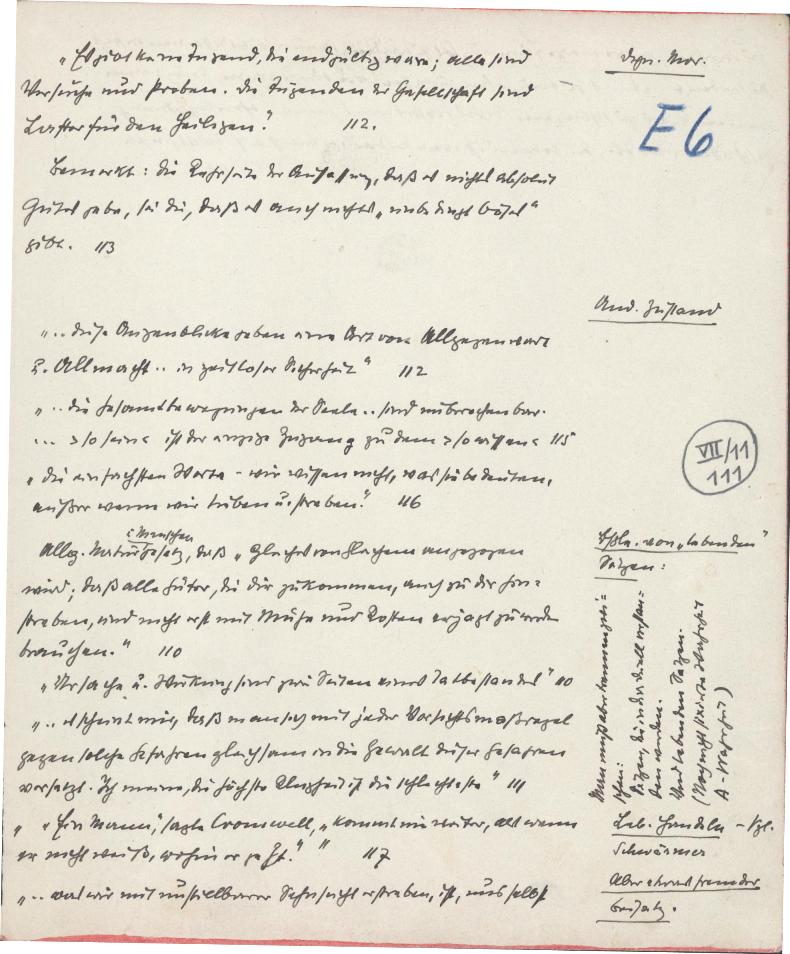 „Es gibt keine Tugend, die endgültig wäre; alle sind
Versuche und Proben. Die Tugenden der Gesellschaft sind
Laster für den Heiligen." 112.
Bemerkt: die Kehrseite der Auffassung, daß es nichts absolut
Gutes gebe, sei die, daß es auch nichts „unbedingt Böses"
gibt. 113
„.. diese Augenblicke geben eine Art von Allgegenwart
u. Allmacht .. in zeitloser Sicherheit" 112
„.. die Gesamtbewegungen der Seele .. sind unberechenbar.
... >so sein< ist der einzige Zugang zu dem >so wissen< 115
„Die einfachsten Worte – wir wissen nicht, was sie bedeuten,
außer wenn wir lieben u. streben." 116
i Menschen
Allg. Naturgesetz, daß „Gleiches von Gleichem angezogen
wird; daß alle Güter, die dir zukommen, auch zu dir hin=
streben, und nicht erst mit Mühe und Kosten erjagt zu werden
brauchen." 110
„Ursache u. Wirkung sind zwei Seiten eines Tatbestandes" 110
„.. es scheint mir, daß man sich mit jeder Vorsichtsmaßregel
gegen solche Gefahren gleichsam in die Gewalt dieser Gefahren
versetzt. Ich meine, die höchste Klugheit ist die schlechteste" 111
„„Ein Mann", sagte Cromwell, „kommt nie weiter, als wenn
er nicht weiß, wohin er geht."" 117
„.. was wir mit unstillbarer Sehnsucht erstreben, ist, uns selbst
Mor.
E6
And. Zustand
VII/11
111
von „lebenden"
Sätzen:
Man muß aber trennen zwi=
schen:
Sätzen, die in der
den werden.
Und lebenden Sätzen.
(Noch nicht
A.
Leb. Handeln – Vgl.
Schwärmer
Aber etwas fremder